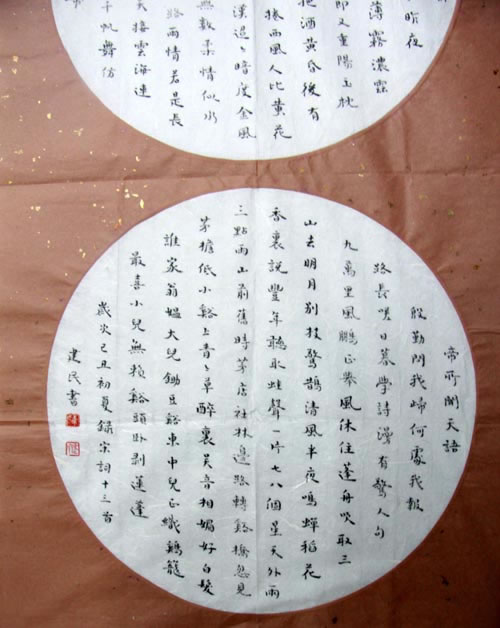 昨夜
薄霧濃雲
又重陽玉枕
把酒黃昏後有
捲西風人比黃花
漢迢々暗度金風
無數柔情似水
路兩情若是長
天接雲濤連
千帆舞仿
帝
帝所聞天語
殷勤問我歸何處我報
路長嗟日暮學詩漫有驚人句
九萬里風鵬正舉風休住蓬舟吹取三
山去明月別枝驚鵲清風半夜鳴蟬稻花
香裏說豐年聽取蛙聲一片七八個星天外兩
三點雨山前舊時茅店社林邊路轉谿橋忽見
茅檐低小谿上青々草醉裏吳音相媚好白髮
誰家翁媼大兒鋤豆谿東中兒正織鷄籠
最喜小兒無賴谿頭卧剝蓮蓬
歲次己丑初夏錄宋詞十三首
建民書